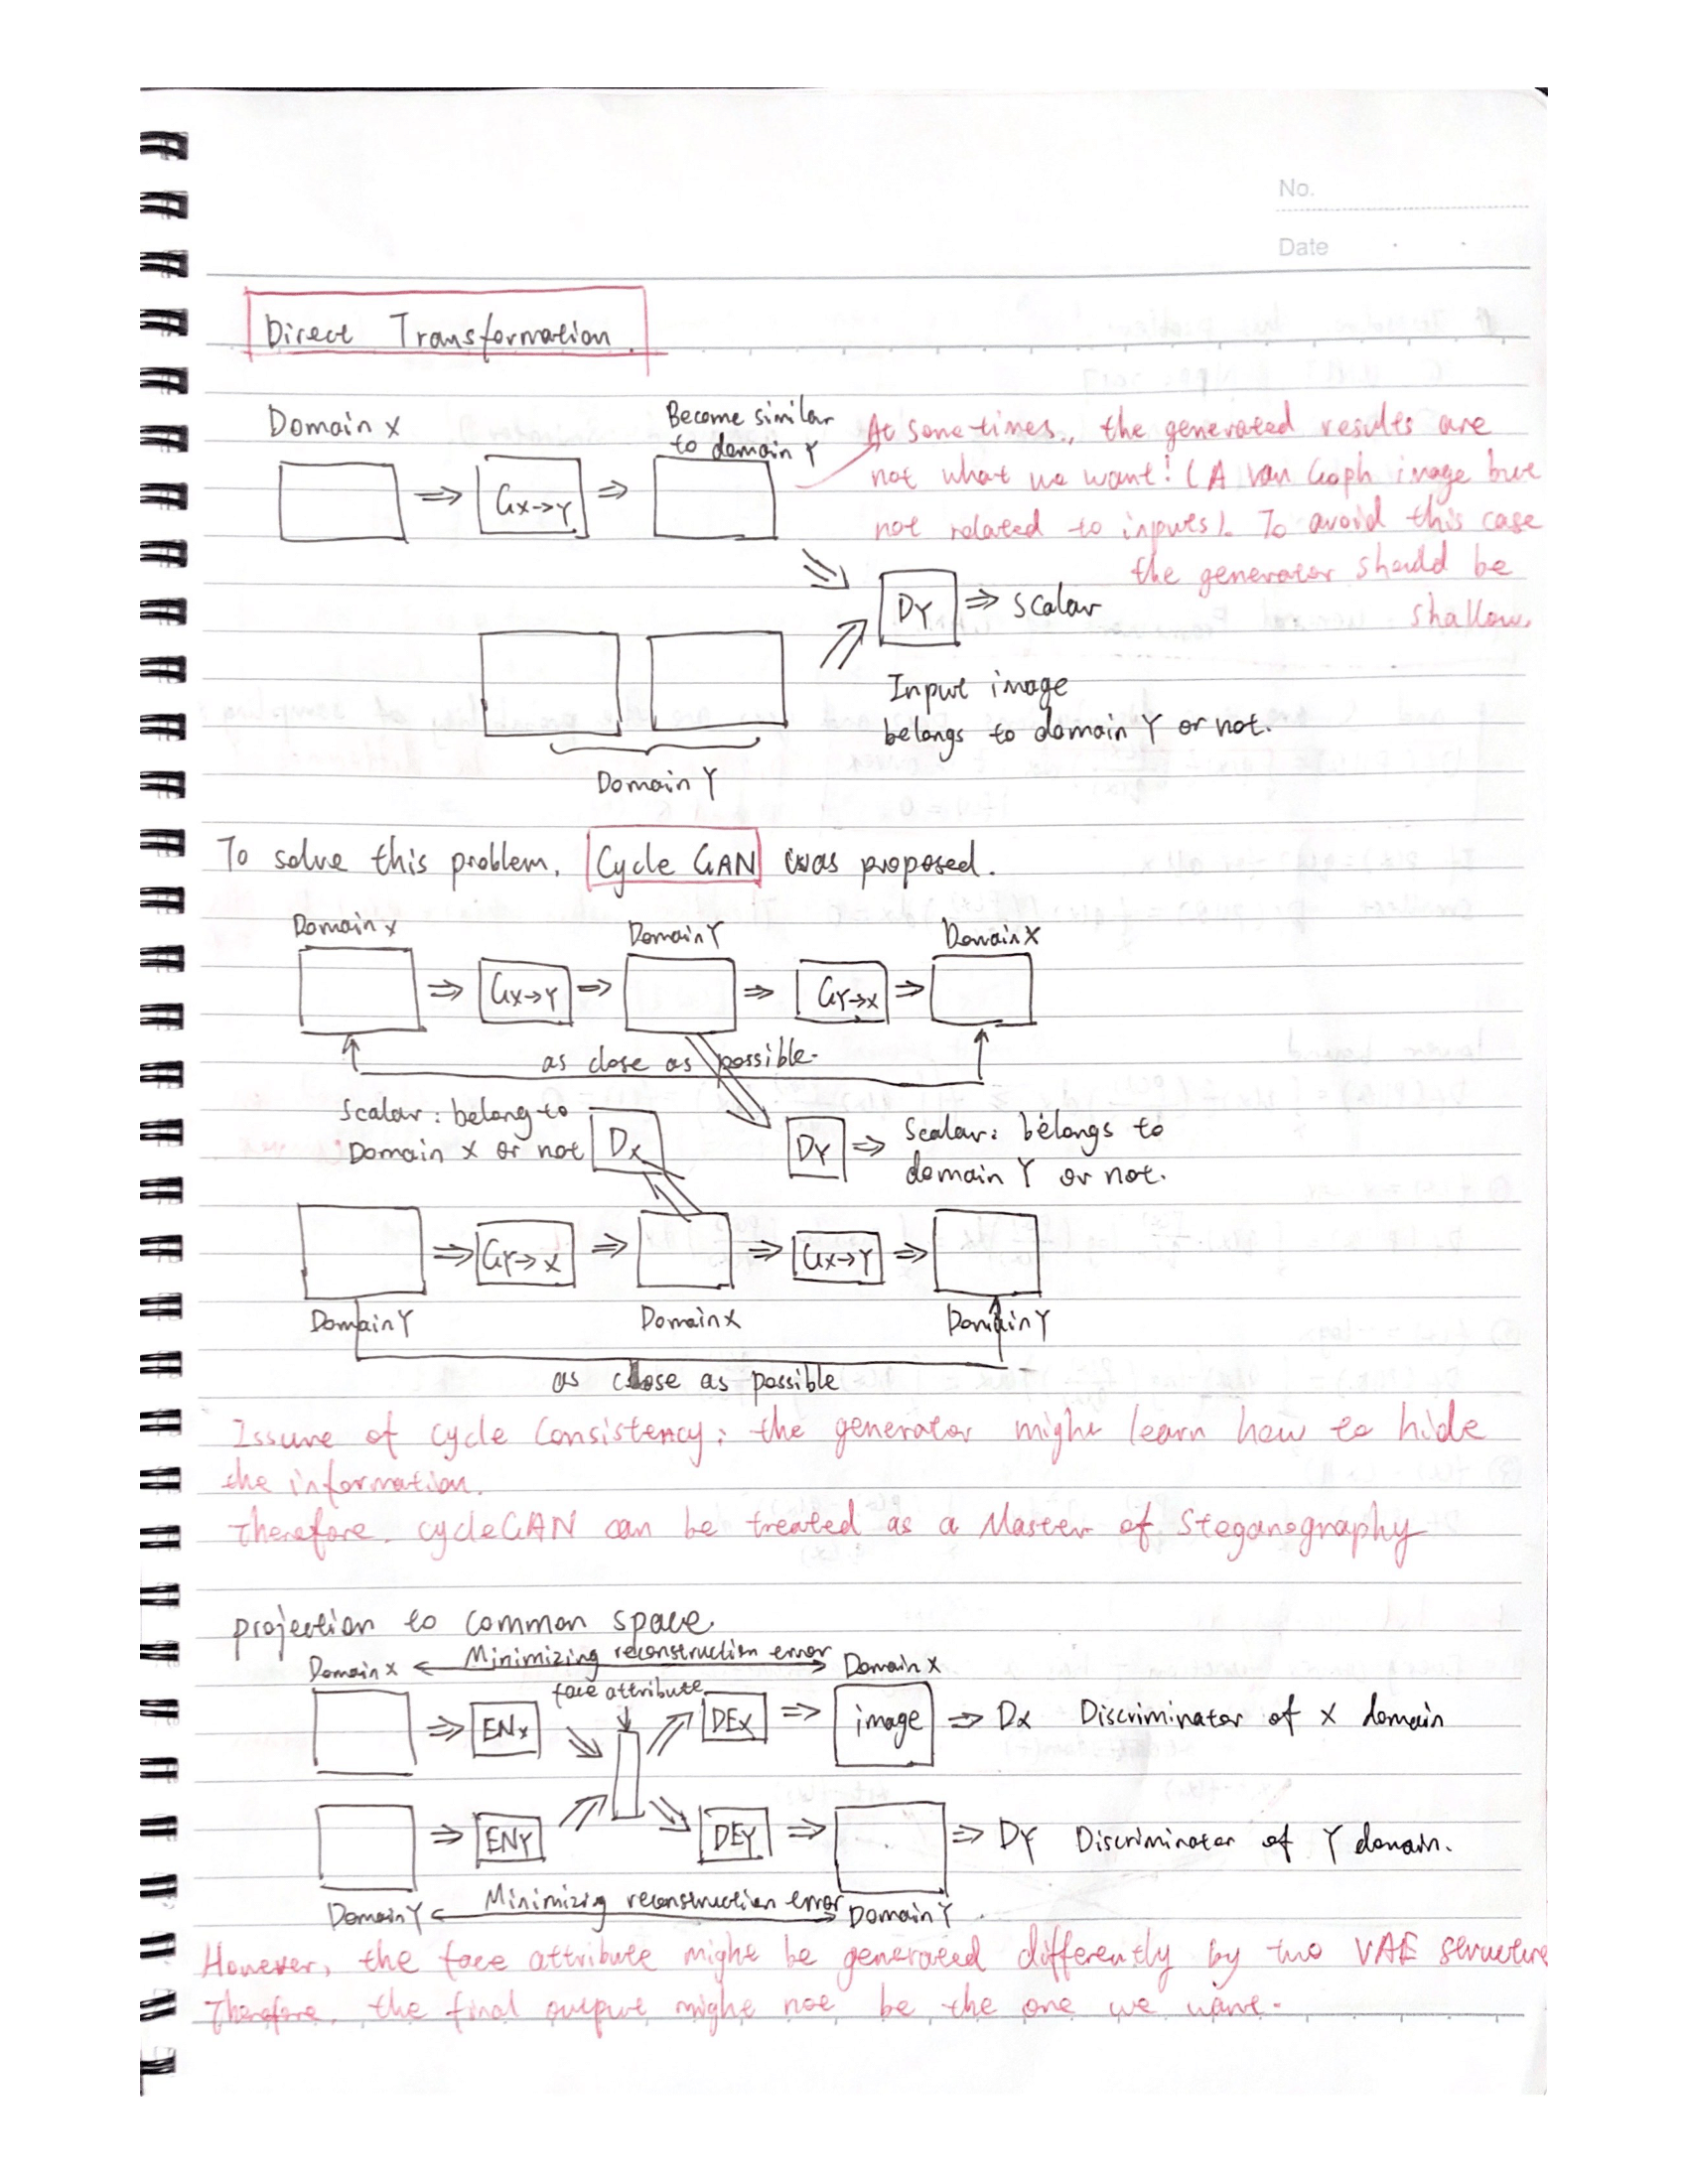 No.
Date
Direct Transformation.
Domain X
Become similar
to domain Y
At sometimes, the generated results are
not what we want! (A Van Goph image but
not related to inputs). To avoid this case
the generator should be
shallow.
GX→Y
DY ⇒ Scalar
Input image
belongs to domain Y or not.
Domain Y
To solve this problem, Cycle GAN was proposed.
Domain X Domain Y Domain X
GX→Y GY→X
as close as possible.
Scalar: belong to
Domain X or not Dx
DY ⇒ Scalar: belongs to
domain Y or not.
GY→X GX→Y
Domain Y Domain X Domain Y
as close as possible
Issure of cycle Consistency: the generator might learn how to hide
the information.
Therefore, cycleGAN can be treated as a Master of Steganography
projection to common space.
Domain X Minimizing reconstruction error Domain X
face attribute
ENx DEx image ⇒ Dx Discriminator of X domain
ENY DEY ⇒ DY Discriminator of Y domain.
Domain Y Minimizing reconstruction error Domain Y
However, the face attribute might be generated differently by two VAE structure
Therefore, the final output might not be the one we want.